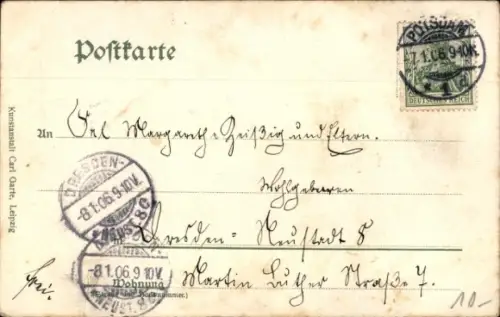 Postkarte
POTSDAM
7.1.06.9-10N.
* 1 d
DEUTSCHES REICH
An Frl. Margarethe Zeißig und Eltern.
Wohlgeboren
Dresden-Neustadt 8
Martin Luther Straße 7.
Wohnung
(Straße und Hausnummer.)
frei.
DRESDEN-
-8.1.06.9-10V.
-8.1.06.9-10V.
Kunstanstalt Carl Garte, Leipzig
10-